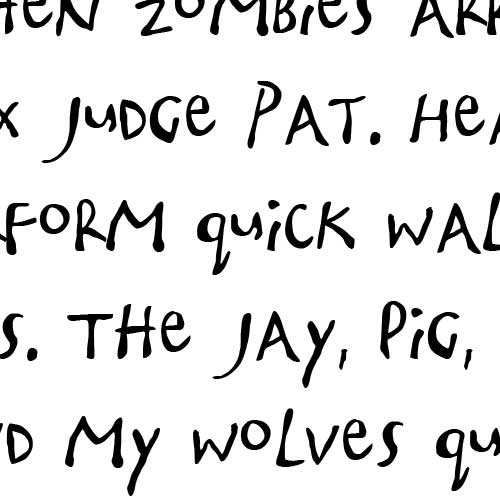 HEN ZOMBIES ARR
X JUDGE PAT. HEA
FORM QUICK WAL
S. THE JAY, PIG,
D MY WOLVES QU